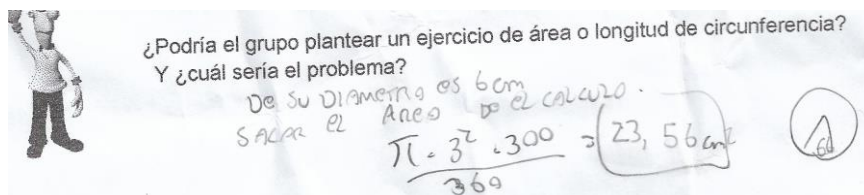 ¿Podría el grupo plantear un ejercicio de área o longitud de circunferencia?
Y ¿cuál sería el problema?
De su DIAMETRO es 6cm
SACAR el Area De el CALCULO.
π . 3² . 300 = 23,56 cm²
360
60